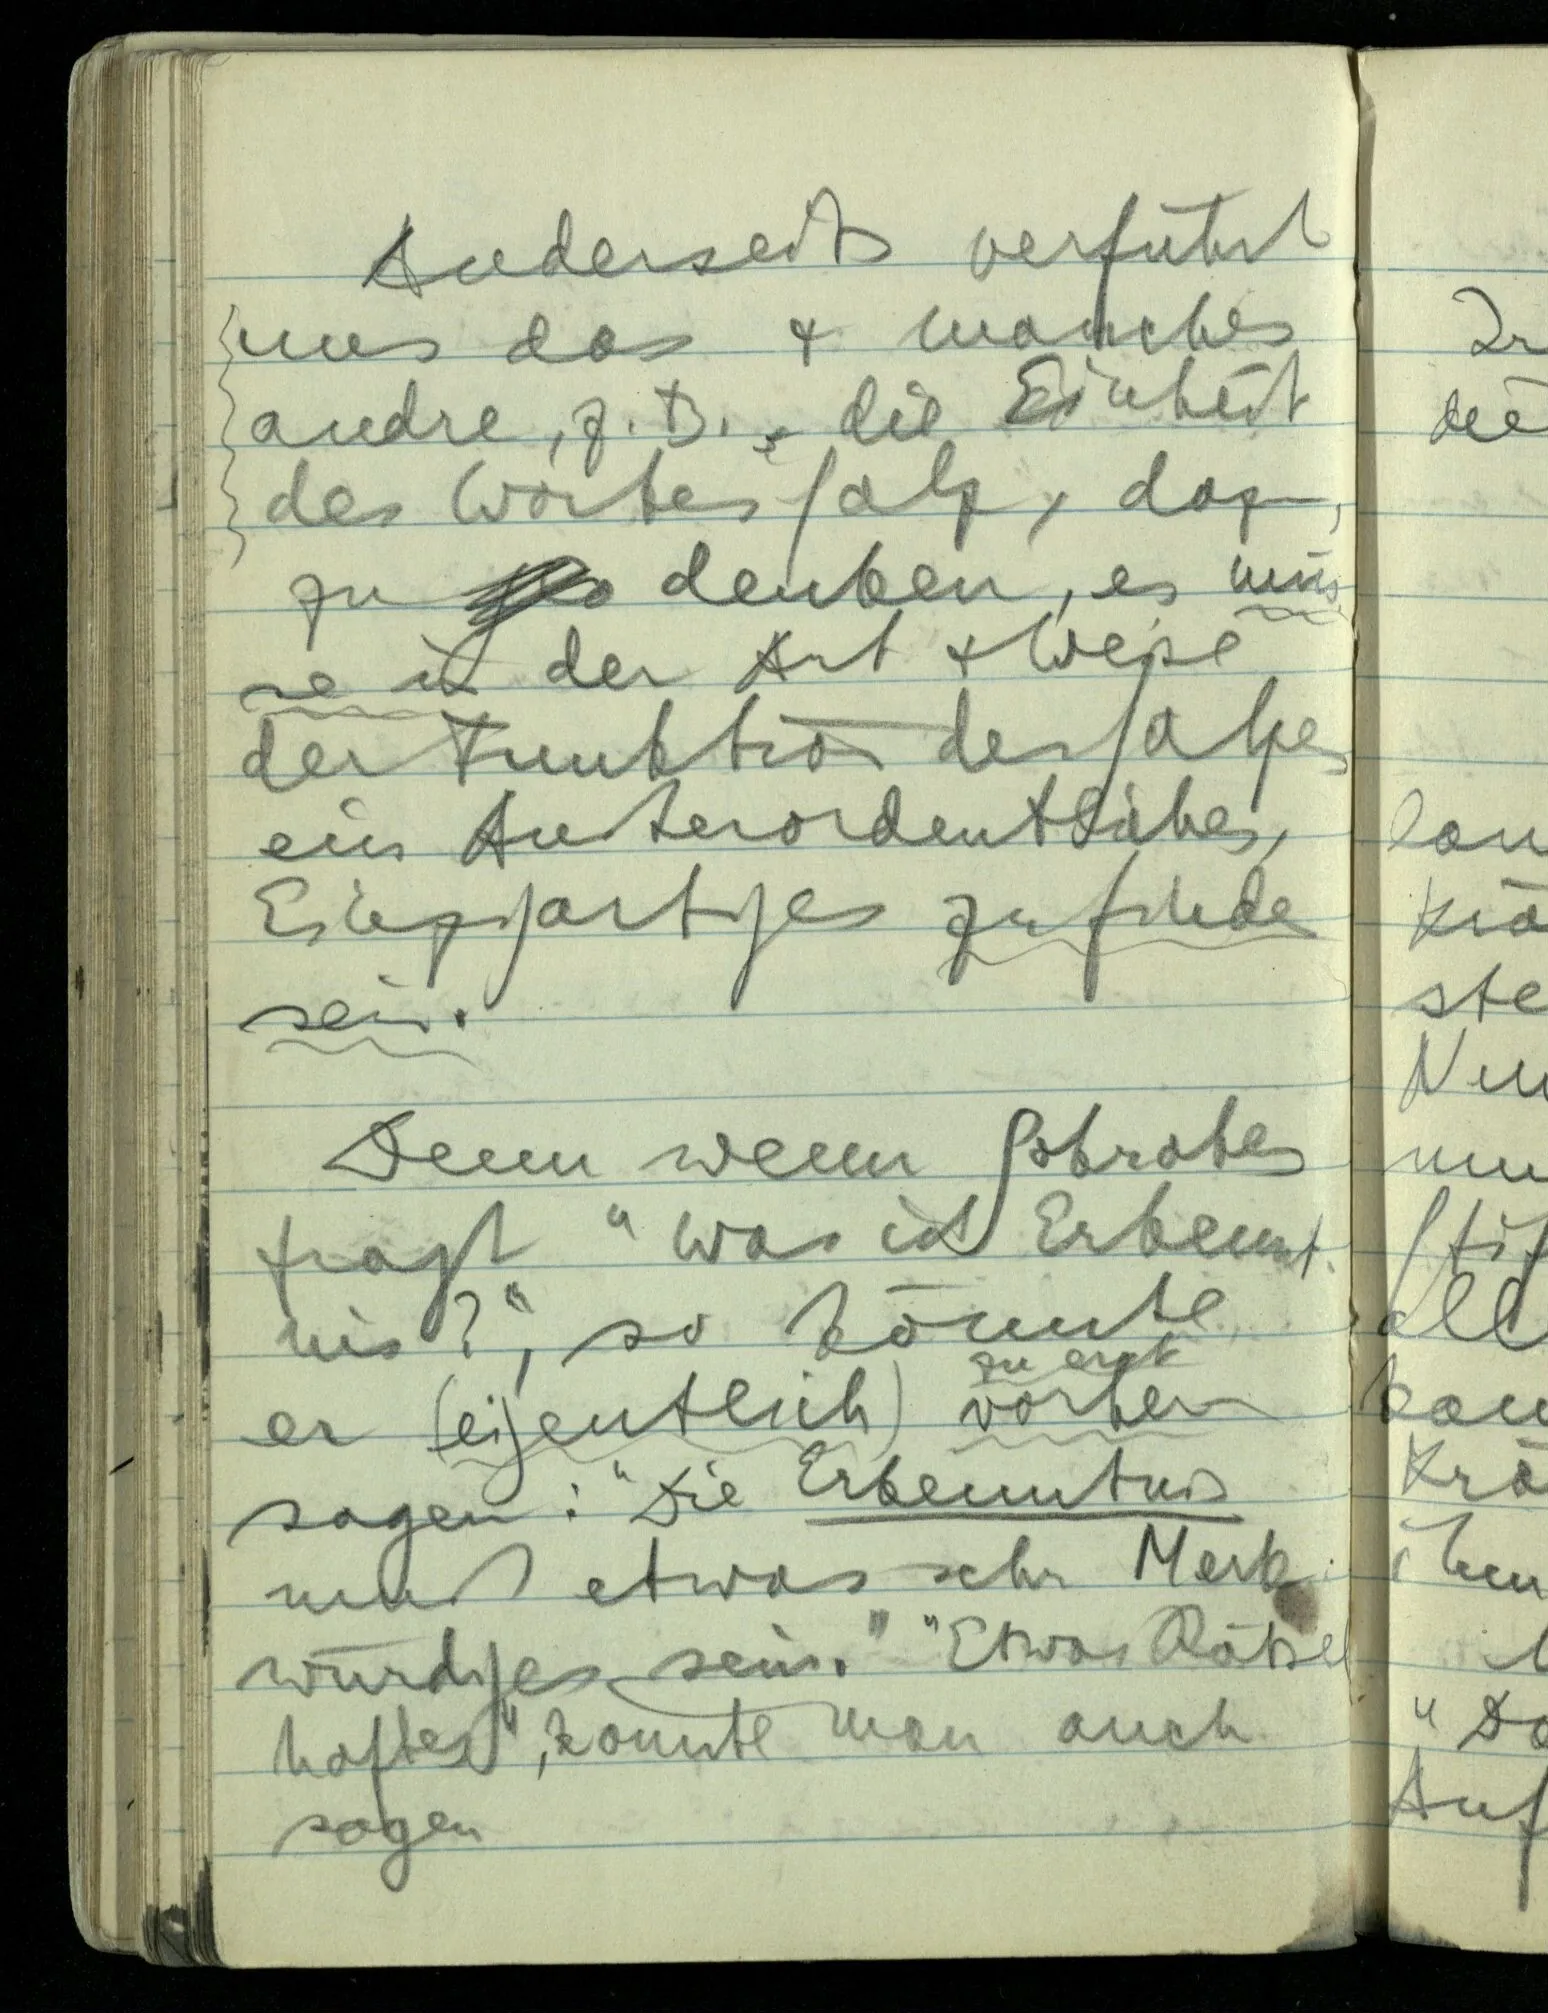 Anderseits verführt
uns das & manches
andre, z.B., die Einheit
des Wortes Satz, dazu,
zu denken, es müs-
se in der Art & Weise
der Funktion des Satzes
ein Außerordentliches,
Einzigartiges zu finden
sein.
Denn wenn Sokrates
fragt "Was ist Erkennt-
nis?", so könnte
zuerst
er (eigentlich) vorher
sagen: "Die Erkenntnis
muß etwas sehr Merk-
würdiges sein." "Etwas Rätsel
haftes", könnte man auch
sagen
Kra
ste